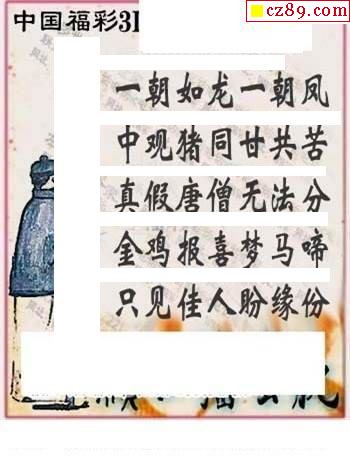 cz89.com
中国福彩3
一朝如龙一朝凤
中观猪同甘共苦
真假唐僧无法分
金鸡报喜梦马啼
只见佳人盼缘份